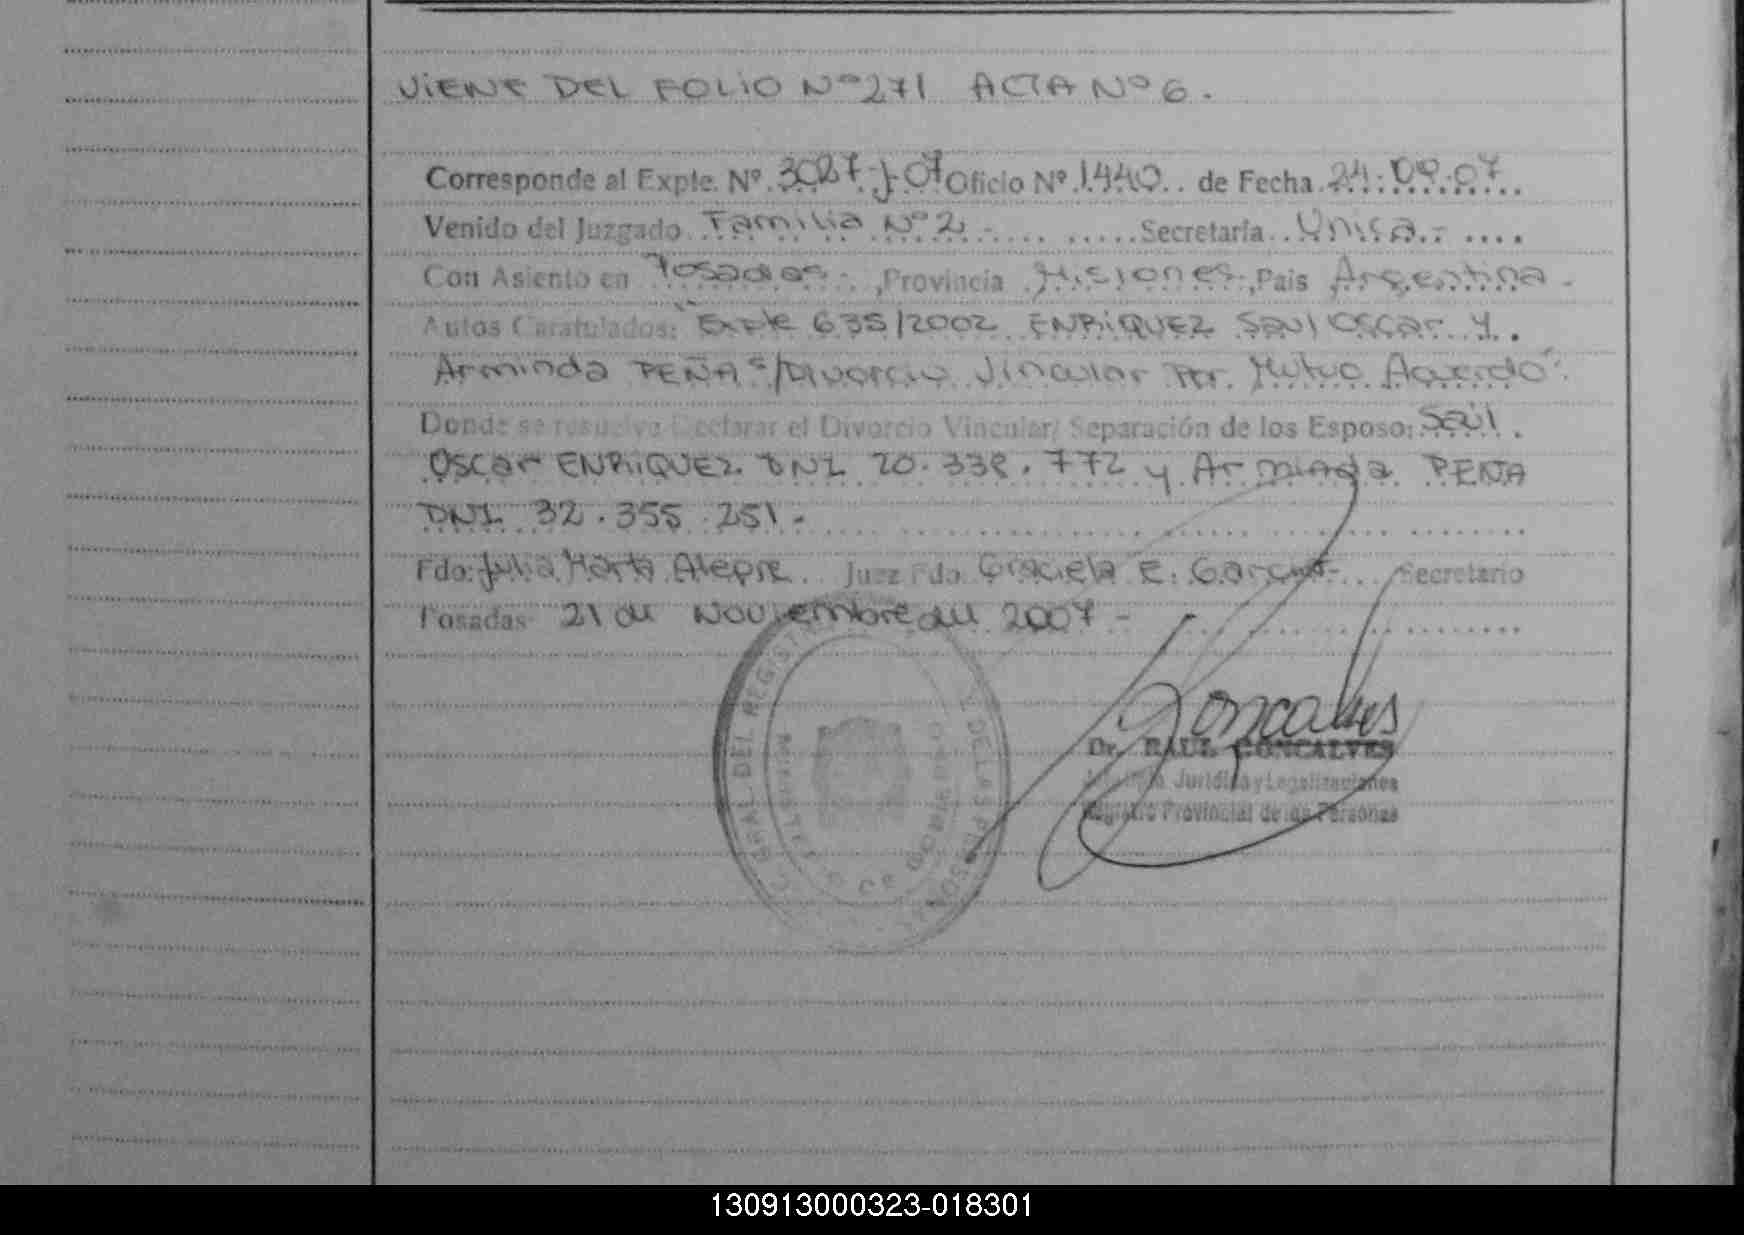 VIENE DEL FOLIO Nº 271 ACTA Nº 6.
Corresponde al Expte. Nº 3027-J-07 Oficio Nº 1440 de Fecha 24.09.07
Venido del Juzgado Familia Nº 2.- Secretaría Unica.-
Con Asiento en Posadas.-, Provincia Misiones.-, Pais Argentina.-
Autos Caratulados: "Expte 635/2002 ENRIQUEZ Saul Oscar y
Arminda PEÑA s/Divorcio Vincular Por Mutuo Acuerdo".
Donde se resuelve Declarar el Divorcio Vincular/ Separación de los Esposo: Saúl
Oscar ENRIQUEZ DNI 20.338.772 y Arminda PEÑA
DNI 32.355.251.-
Fdo: Julia Marta Alegre. Juez Fdo. Graciela E. Garcia-. Secretario
Posadas 21 de Noviembre del 2007.-
GRAL. DEL REGISTRO DE LAS PERSONAS
MINISTERIO DE GOBIERNO
Goncalves
Dr. RAUL GONCALVES
Jurídica y Legalizaciones
Registro Provincial de las Personas
130913000323-018301